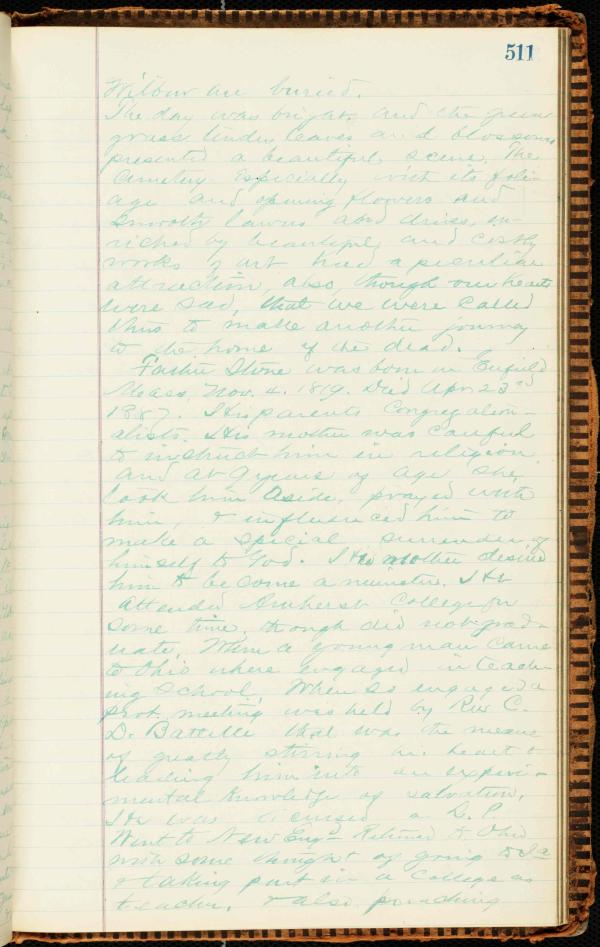 511
Wilbur are buried.
The day was bright, and the green
grass tinder leaves and blossoms
presented a beautiful scene, The
Cemetery Especially with its foli-
age and opening flowers and
Smooth lawns and drives, en-
riched by beautiful and costly
works of art had a peculiar
attraction, also, though our hearts
were sad, that we were called
thus to make another journey
to the home of the dead.
Father Stone was born in Enfield
Mass, Nov. 4. 1819. Died Apr 23rd
1887. His parents Congregation-
alists. His mother was careful
to instruct him in religion
and at 9 years of age she
took him aside, prayed with
him, & influenced him to
make a special surrender of
himself to God. His mother desired
him to become a minister. He
attended Amherst College for
some time, though did not grad-
uate. When a young man came
to Ohio where engaged in teach-
ing School. When so engaged a
prot. meeting was held by Rev C.
D. Battelle that was the means
of greatly stirring his heart &
leading him into an experi-
mental knowledge of salvation.
He was licensed a L. P.
Went to New Eng. Retired to Ohio
with some thought of going to
& taking part in a College as
teacher, & also preaching